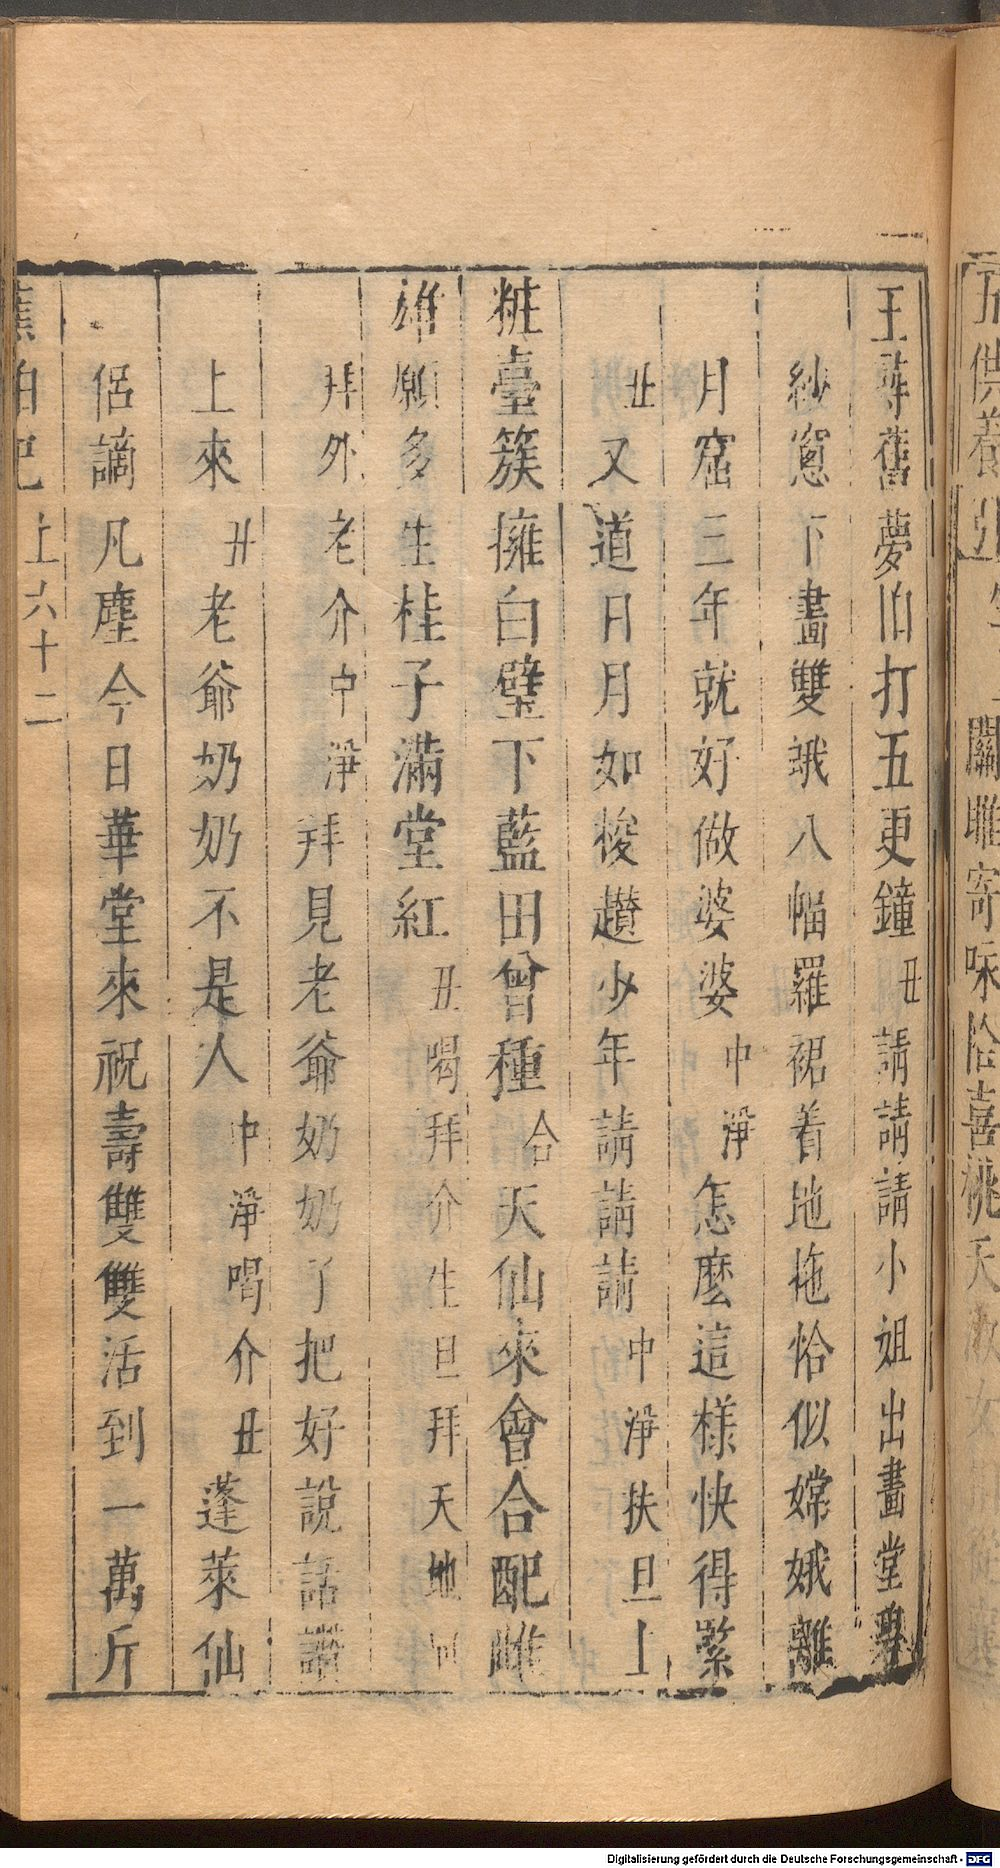 王尋舊夢怕打五更鐘丑請請請小姐出畫堂
紗窻下畫雙蛾八幅羅裙着地拖恰似嫦娥離
月窟三年就好做婆婆中淨怎麼這樣快得緊
丑又道日月如梭趲少年請請請中淨扶旦上
粧臺簇擁白璧下藍田曾種合天仙來會合配雎
雄願多生桂子滿堂紅丑喝拜介生旦拜天地
拜外老介中淨拜見老爺奶奶了把好說話讚
上來丑老爺奶奶不是人中淨喝介丑蓬萊仙
侶謫凡塵今日華堂來祝壽雙雙活到一萬斤
蕉帕記 上六十二
供養
關雎寄咏恰喜桃夭
Digitalisierung gefördert durch die Deutsche Forschungsgemeinschaft - DFG